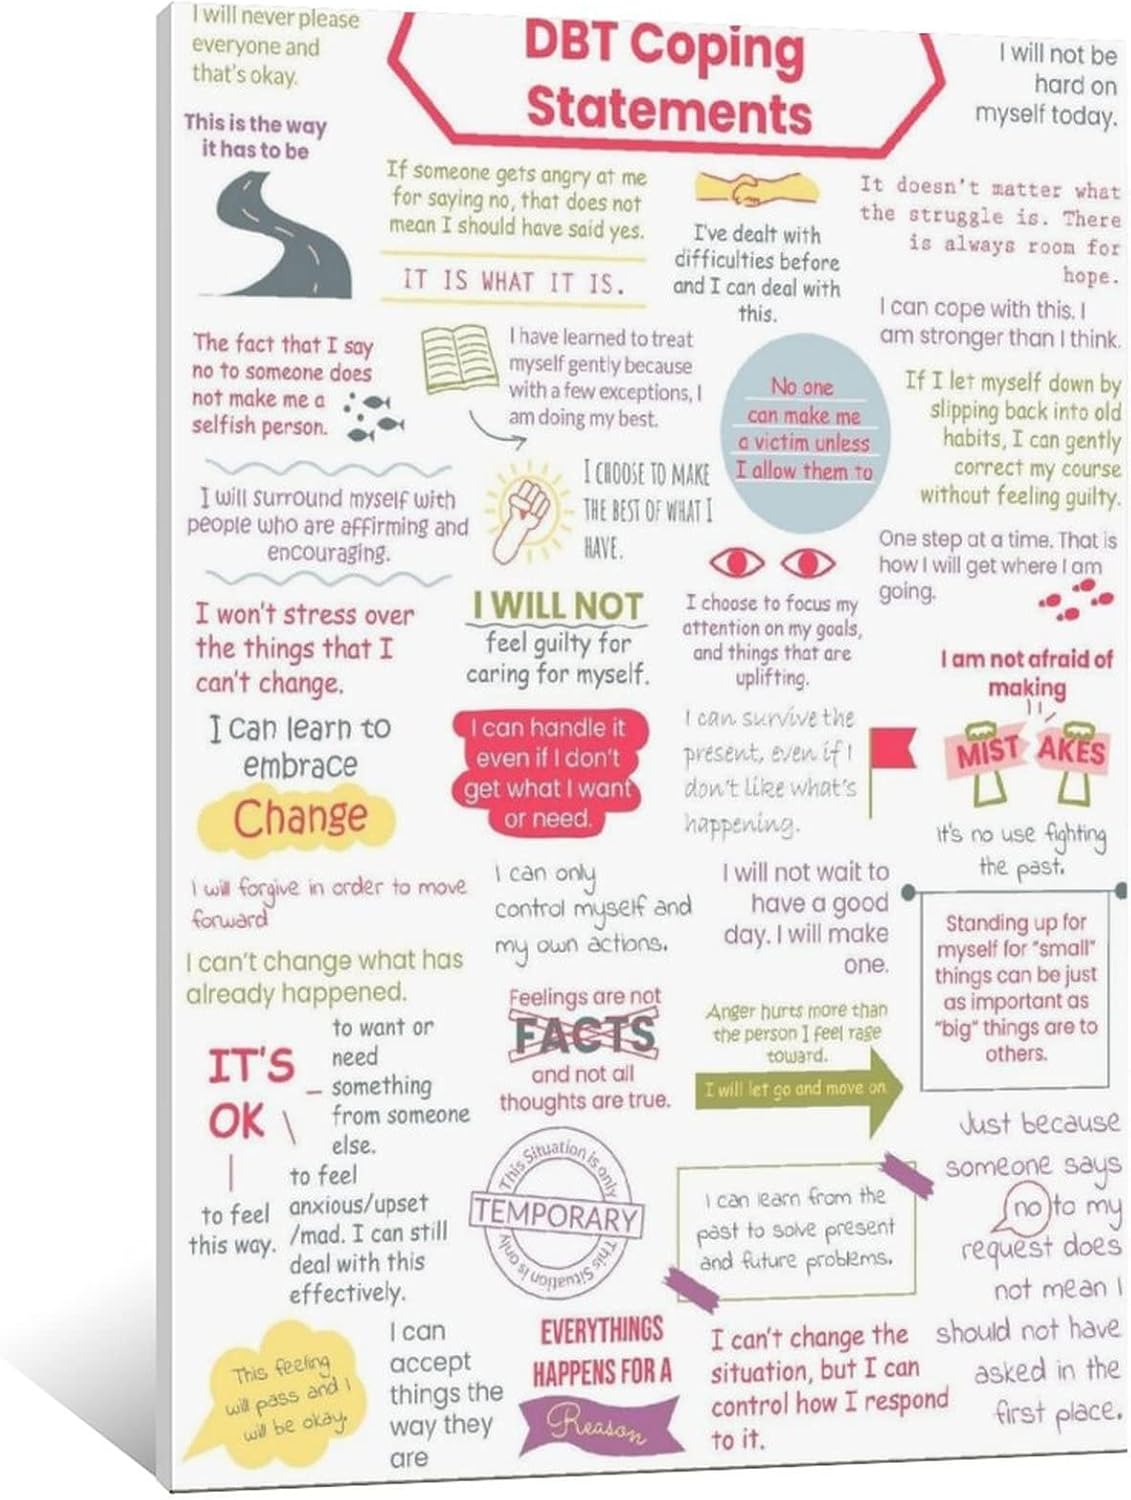 I will never please
everyone and
that's okay.
DBT Coping
Statements
I will not be
hard on
myself today.
This is the way
it has to be
If someone gets angry at me
for saying no, that does not
mean I should have said yes.
IT IS WHAT IT IS.
I've dealt with
difficulties before
and I can deal with
this.
It doesn't matter what
the struggle is. There
is always room for
hope.
I can cope with this. I
am stronger than I think.
The fact that I say
no to someone does
not make me a
selfish person.
I have learned to treat
myself gently because
with a few exceptions, I
am doing my best.
No one
can make me
a victim unless
I allow them to
If I let myself down by
slipping back into old
habits, I can gently
correct my course
without feeling guilty.
I will surround myself with
people who are affirming and
encouraging.
I CHOOSE TO MAKE
THE BEST OF WHAT I
HAVE.
One step at a time. That is
how I will get where I am
going.
I won't stress over
the things that I
can't change.
I WILL NOT
feel guilty for
caring for myself.
I choose to focus my
attention on my goals,
and things that are
uplifting.
I am not afraid of
making
MIST AKES
I can learn to
embrace
Change
I can handle it
even if I don't
get what I want
or need.
I can survive the
present, even if I
don't like what's
happening.
It's no use fighting
the past.
I will forgive in order to move
forward
I can only
control myself and
my own actions.
I will not wait to
have a good
day. I will make
one.
Standing up for
myself for "small"
things can be just
as important as
"big" things are to
others.
I can't change what has
already happened.
Feelings are not
FACTS
and not all
thoughts are true.
Anger hurts more than
the person I feel rage
toward.
I will let go and move on
IT'S
OK
to want or
need
something
from someone
else.
to feel
this way.
to feel
anxious/upset
/mad. I can still
deal with this
effectively.
This Situation is only
TEMPORARY
This Situation is only
I can learn from the
past to solve present
and future problems.
Just because
someone says
no to my
request does
not mean I
should not have
asked in the
first place.
This feeling
will pass and I
will be okay.
I can
accept
things the
way they
are
EVERYTHINGS
HAPPENS FOR A
Reason
I can't change the
situation, but I can
control how I respond
to it.